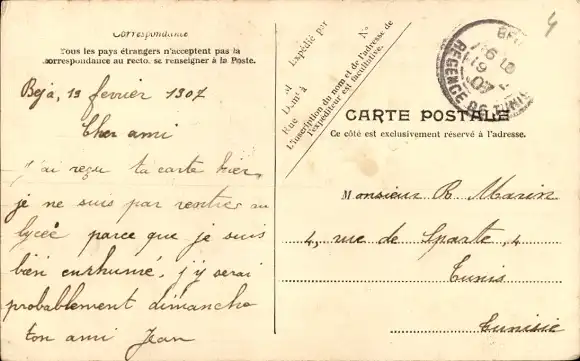 Correspondance
Tous les pays étrangers n'acceptent pas la
correspondance au recto. se renseigner à la Poste.
Beja, 19 fevrier 1907
Cher ami
j'ai reçu ta carte hier,
je ne suis pas rentré au
lyceé parce que je suis
bien enrhumé, j'y serai
probablement dimanche
ton ami Jean
Expédié par
M
Demt à
Rue
N°
L'inscription du nom et de l'adresse de
l'expéditeur est facultative.
4
RÉGENCE DE TUNIS
CARTE POSTALE
Ce côté est exclusivement réservé à l'adresse.
Monsieur R Marin
4, rue de Sparte, 4
Tunis
Tunisie